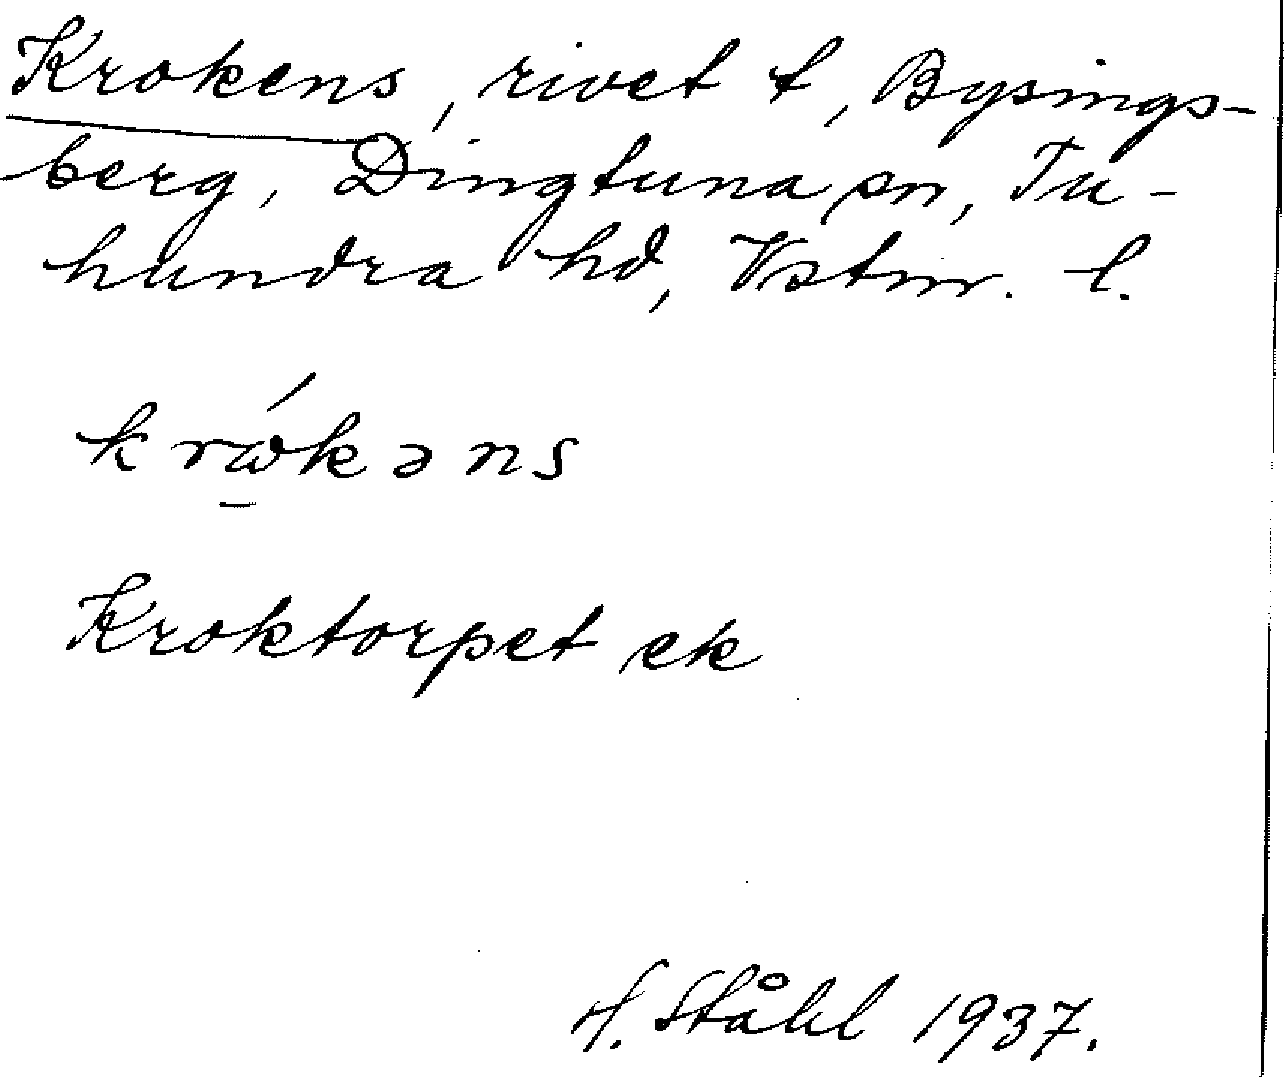 Krokens, rivet t, Bysings-
berg, Dingtuna sn, Tu-
hundra hd, Vstm. l.
krώ̱kəns
Kroktorpet ek
H. Ståhl 1937.